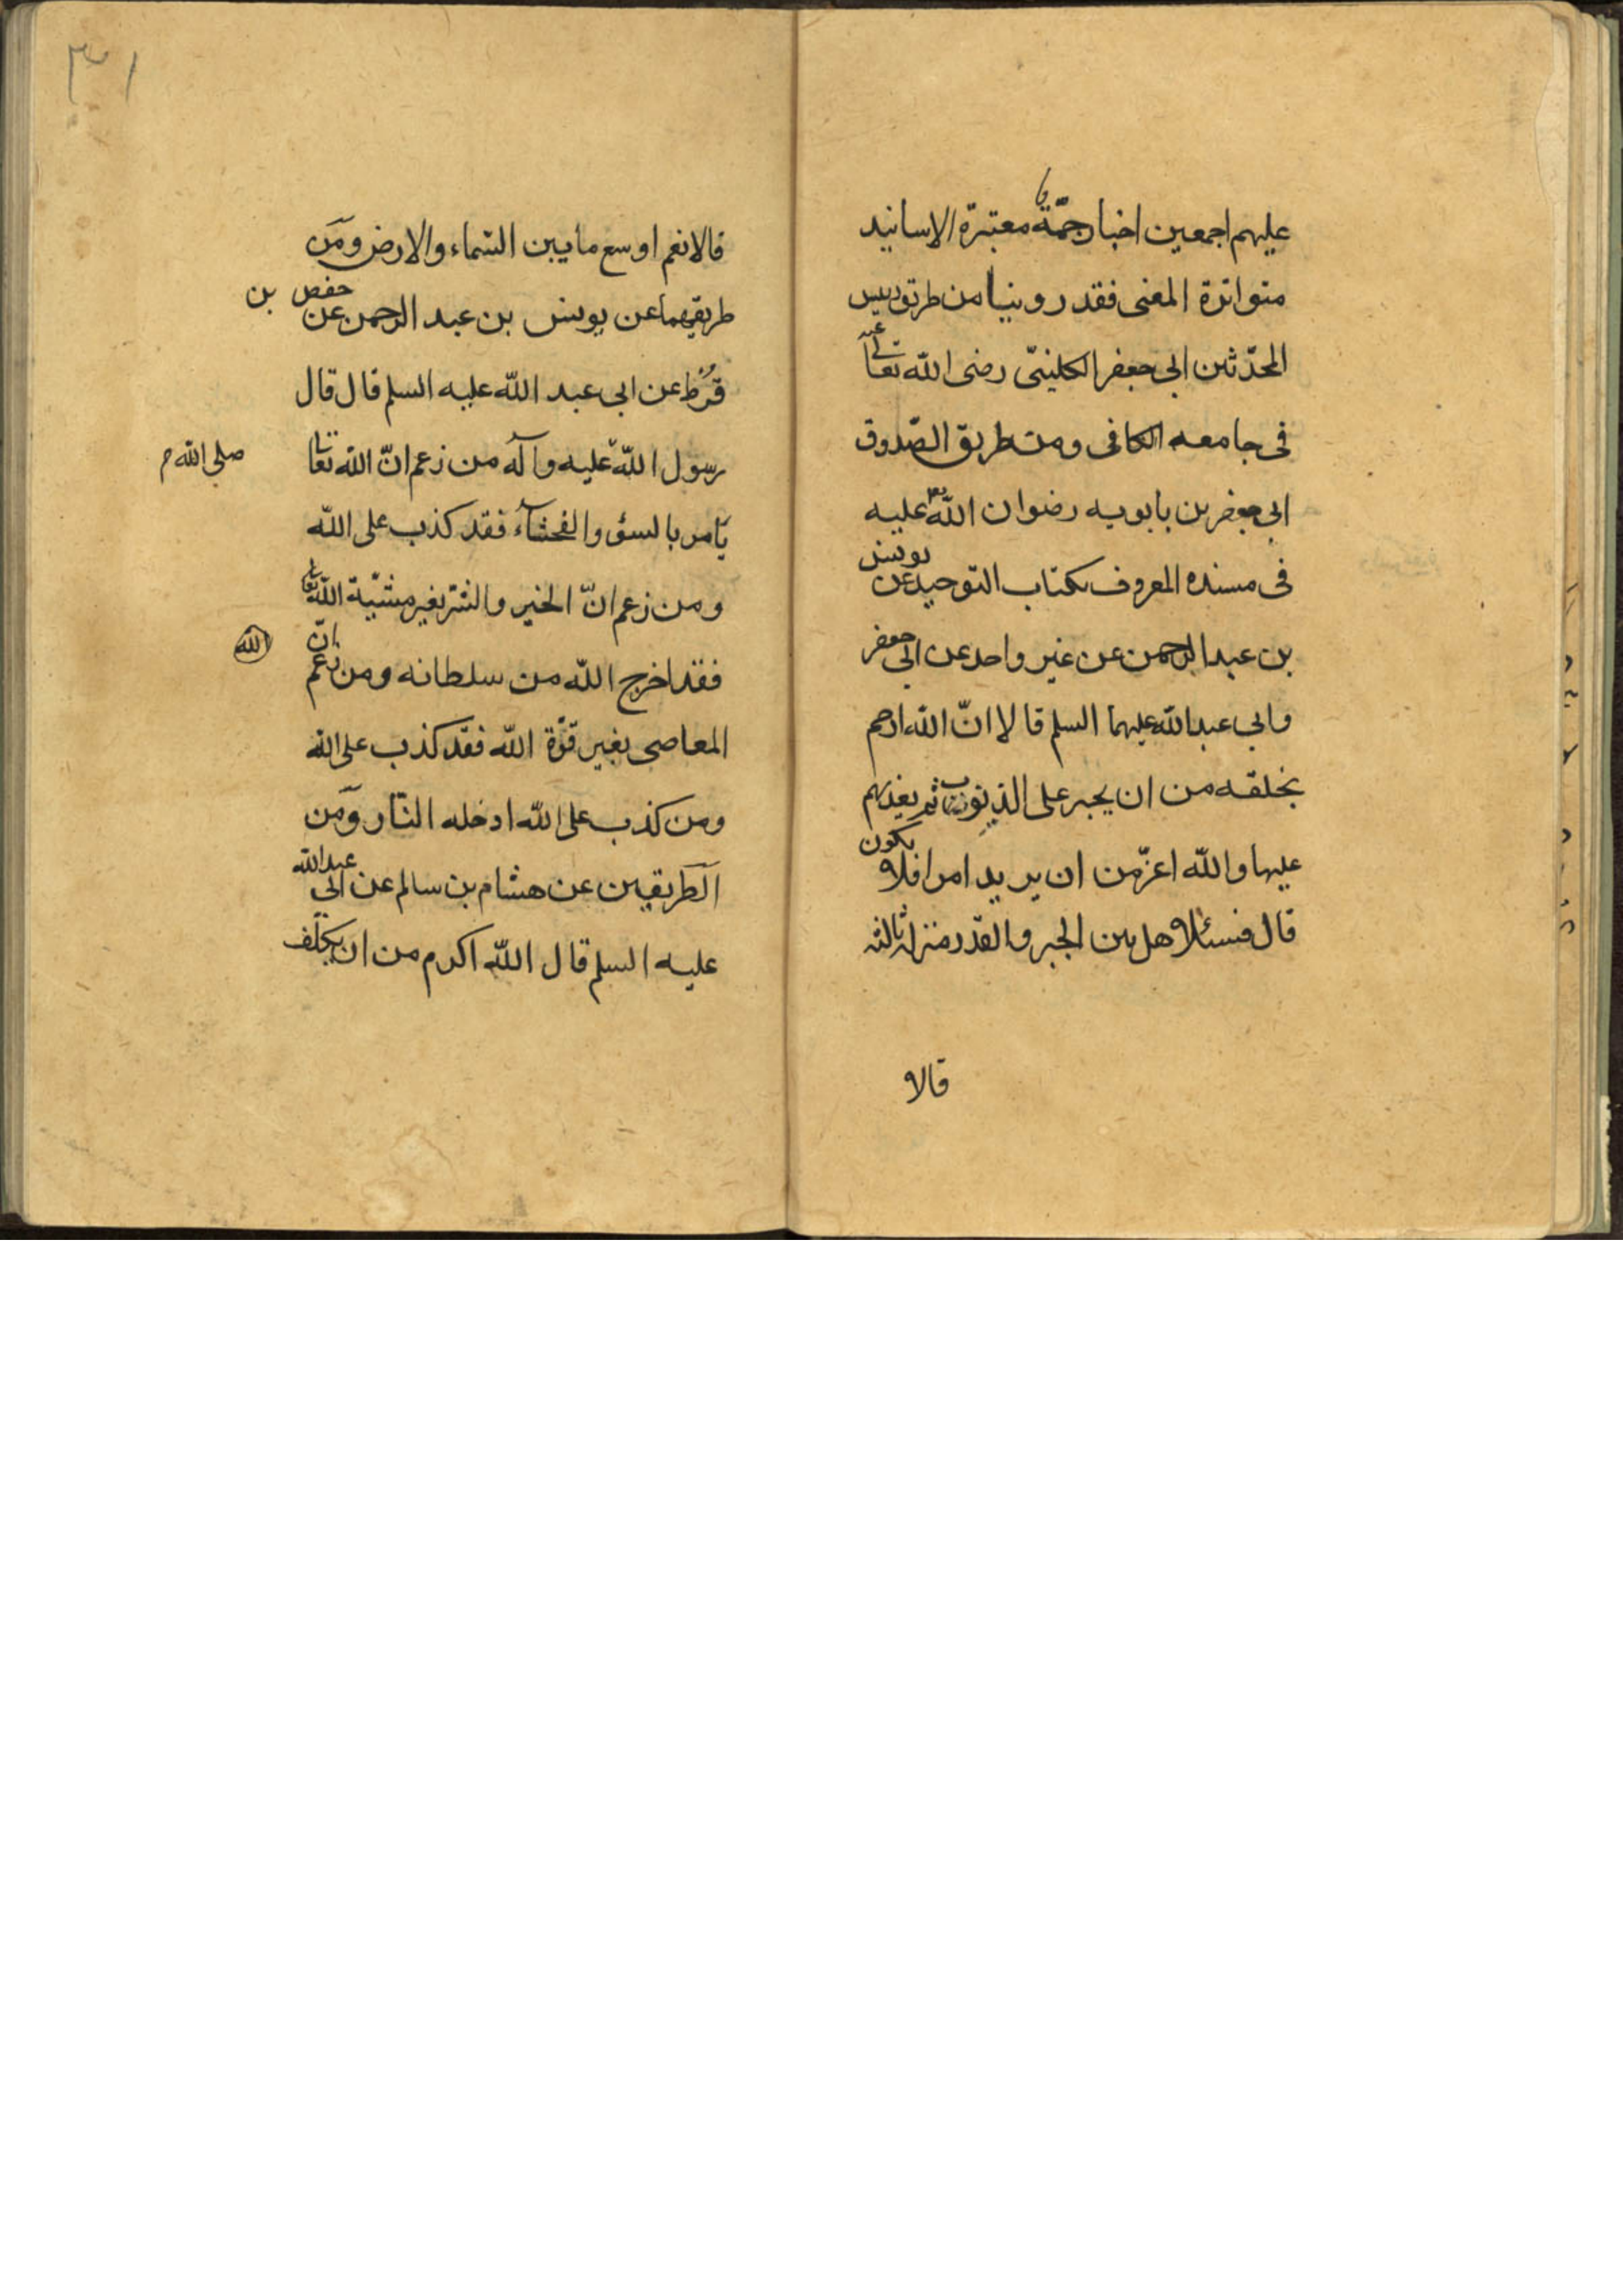 عليهم اجمعين اخبار جمّة معتبرة الاسانيد
متواترة المعنى فقد روينا من طريق رييس
المحدّثين ابى جعفر الكلينىّ رضى الله تعالى عنه
فى جامعه الكافى ومن طريق الصّدوق
ابى جعفر بن بابويه رضوان الله عليه
فى مسنده المعروف بكتاب التوحيد عن يونس
بن عبد الرحمن عن غير واحد عن ابى جعفر
وابى عبد الله عليهما السلم قالا انّ الله ارحم
بخلقه من ان يجبر على الذنوب ثم يعذبهم
عليها والله اعزّ من ان يريد امرا فلا يكون
قال فسئلا هل بين الجبر والقدر منزلة ثالثه
قالا
٣١
قالا نعم اوسع ما بين السّماء والارض ومن
طريقيهما عن يونس بن عبد الرحمن عن حفص بن
قُرْط عن ابى عبد الله عليه السلم قال قال
رسول الله عليه وآله من زعم انّ الله تعالى
صلى الله م
يامر بالسوء والفحشآء فقد كذب على الله
ومن زعم انّ الخير والشّر بغير مشيّة الله تعالى
فقد اخرج الله من سلطانه ومن زعم انّ
الله
المعاصى بغير قوّة الله فقد كذب على الله
ومن كذب على الله ادخله النّار ومن
الطريقين عن هشام بن سالم عن ابى عبد الله
عليه السلم قال الله اكرم من ان يكلّف